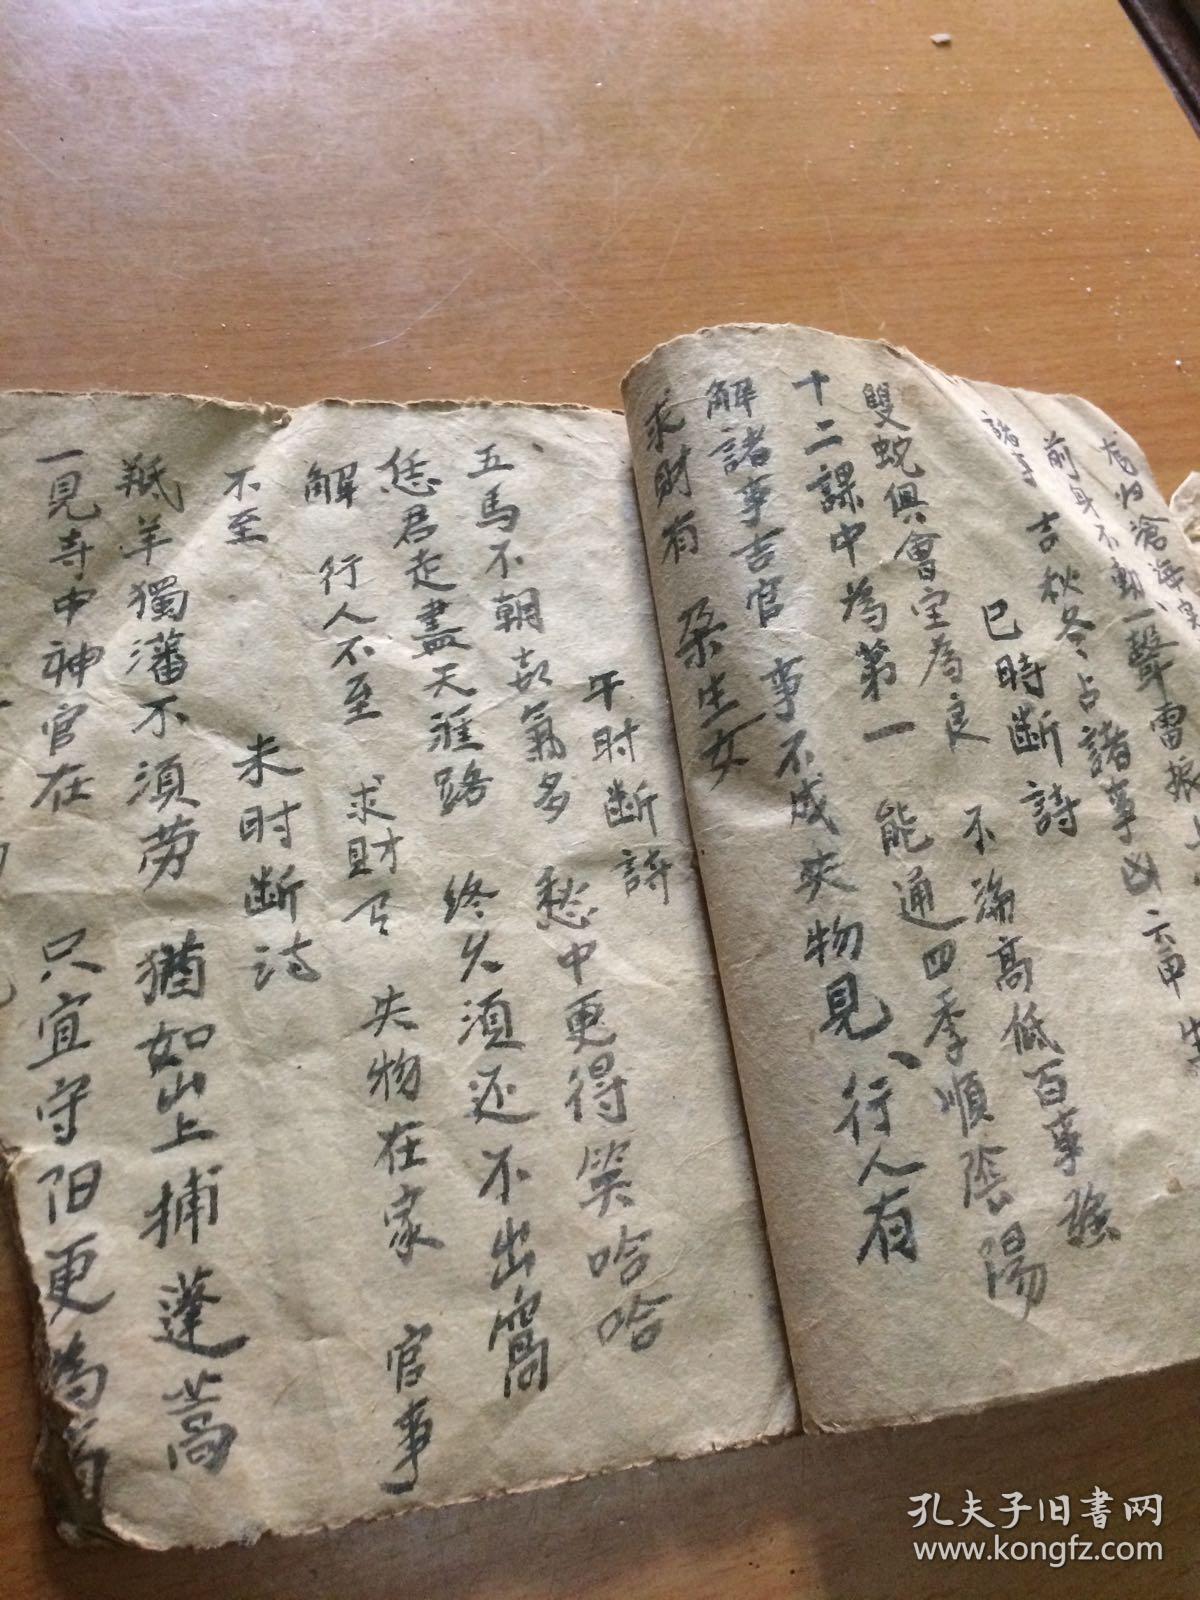 滄海
前身不動一聲雷振
諸事吉秋冬占諸事凶 六甲生
巳時斷詩
雙蛇俱會定為良 不論高低百事強
十二課中為第一 能通四季順陰陽
解諸事吉官事不成失物見、行人有
求財有 六甲生女
午时断詩
五馬不朝喜氣多 愁中更得笑哈哈
恁君走盡天涯路 終久須还不出窩
解 行人不至 求財 失物在家 官事
不至
未时断诗
羝羊獨藩不須劳 猶如山上捕蓬蒿
一見寺中神官在 只宜守旧更為高
孔夫子旧書网
www.kongfz.com